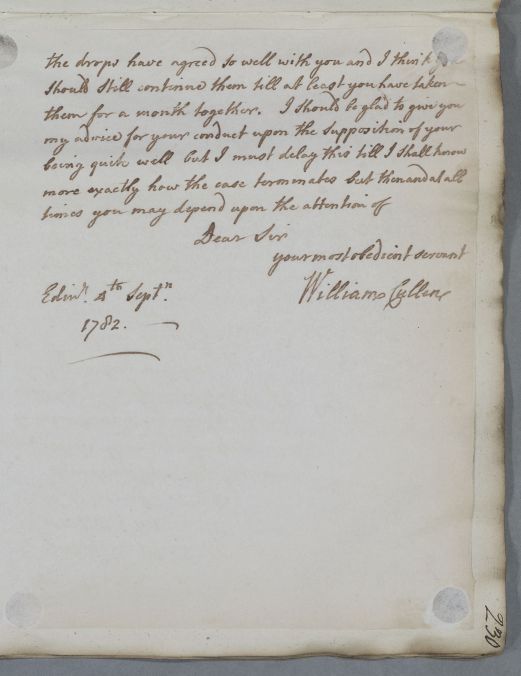 the drops have agreed so well with you and I think you
should still continue them till at least you have taken
them for a month together. I should be glad to give you
my advice for your conduct upon the Supposition of your
being quite well but I must delay this till I shall know
more exactly how the case terminates but then and at all
times you may depend upon the attention of
Dear Sir
your most obedient servant
William Cullen
Edinr. 4th Septr.
1782.
230